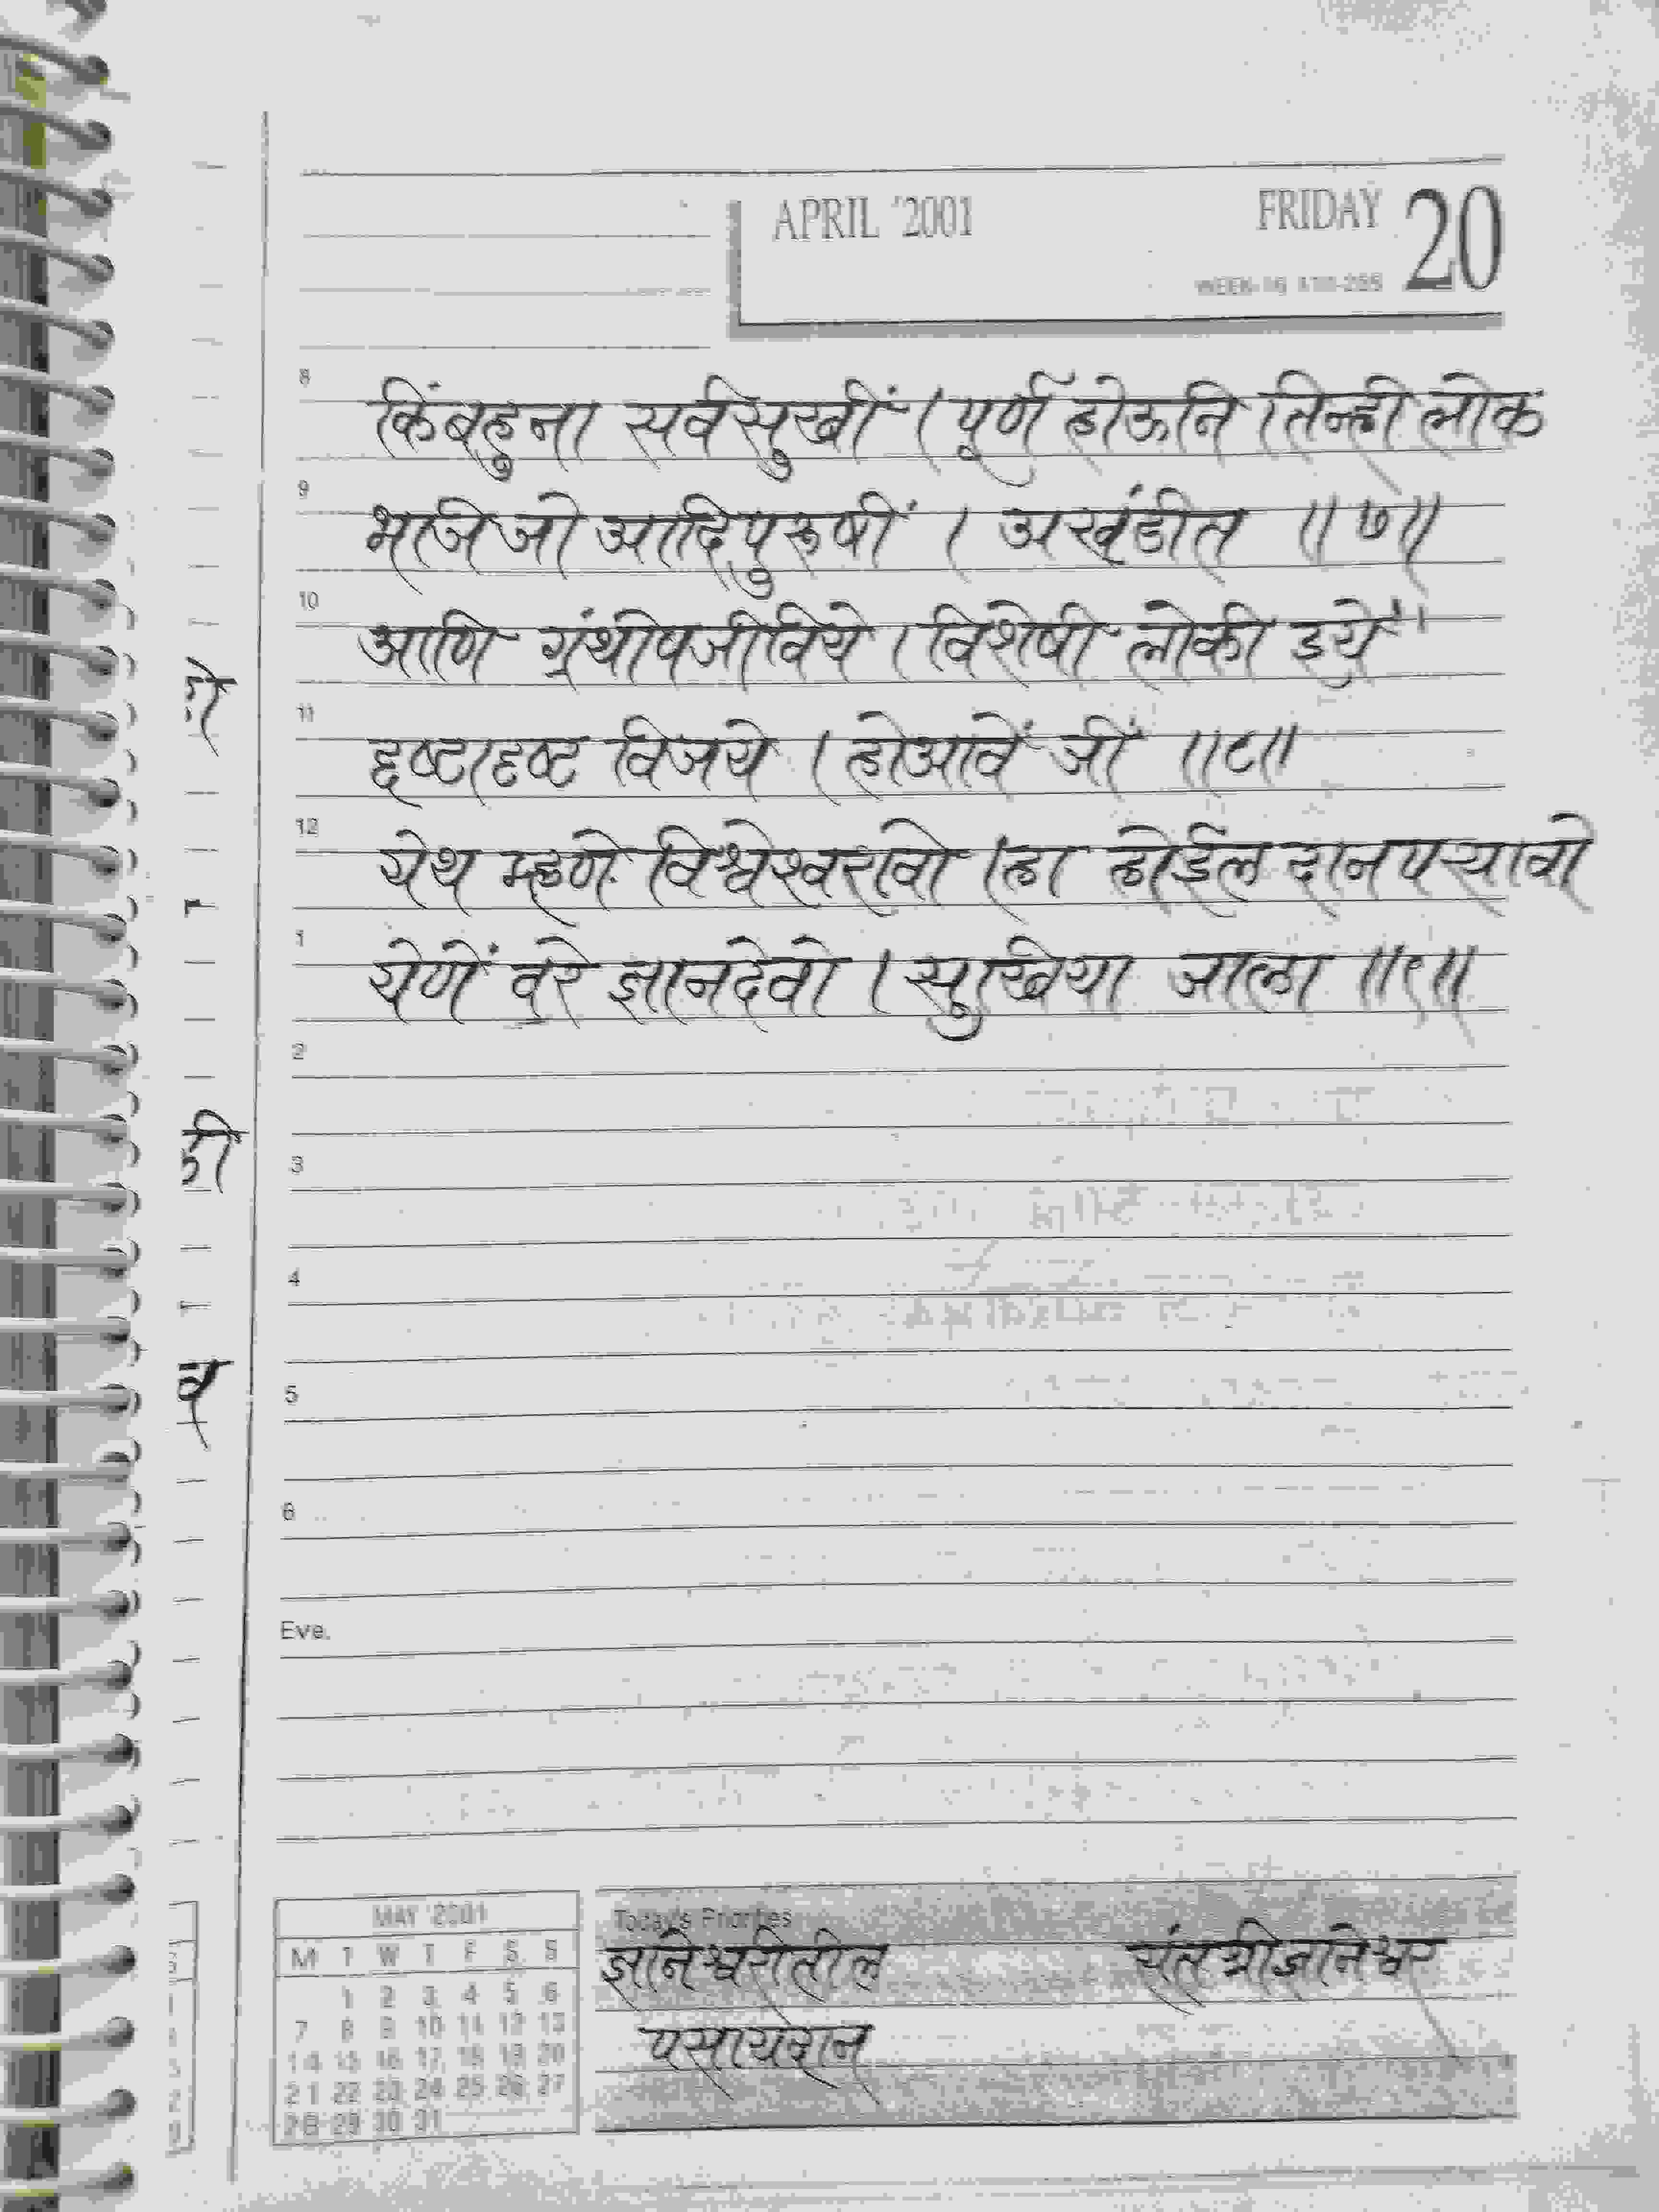 APRIL '2001 FRIDAY 20
8
किंबहुना सर्वसुखीं । पूर्ण होऊनि । तिन्ही लोक
9
भजिजो आदिपुरुषीं । अखंडीत ॥ ७॥
10
आणि ग्रंथोपजीविये । विशेषी लोकी इयें
11
दृष्टादृष्ट विजये । होआवें जीं ॥८॥
12
येथ म्हणे विश्वेश्वरावो । हा होईल दान पसावो
1
येणें वरे ज्ञानदेवो । सुखिया जाला ॥९॥
2
3
4
5
6
Eve.
MAY 2001
M T W T F S S
1 2 3 4 5 6
7 8 9 10 11 12 13
14 15 16 17 18 19 20
21 22 23 24 25 26 27
28 29 30 31
Today's Priorities
ज्ञानेश्वरीतील संत श्रीज्ञानेश्वर
पसायदान